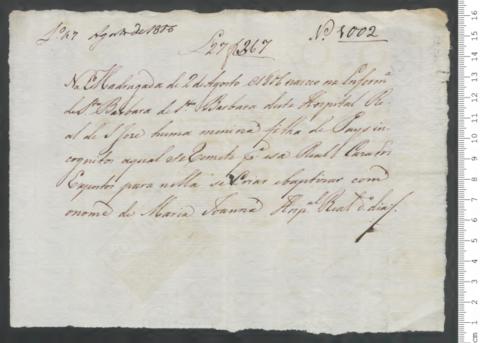 Agosto de 1816
Nº 1002
L 27 f 267
Na Madrugada de 2 de Agosto de 1816 nasceo na Enferm.ª
de S.ta Barbara de S.ta Barbara deste Hospital Re
al de S. Jose huma menina filha de Pays in
cognitos aqual se Remete p.ª a Real Caza dos
Expostos para nella se Criar ebaptizar com
onome de Maria Joanna Hosp.al Real d.º dia